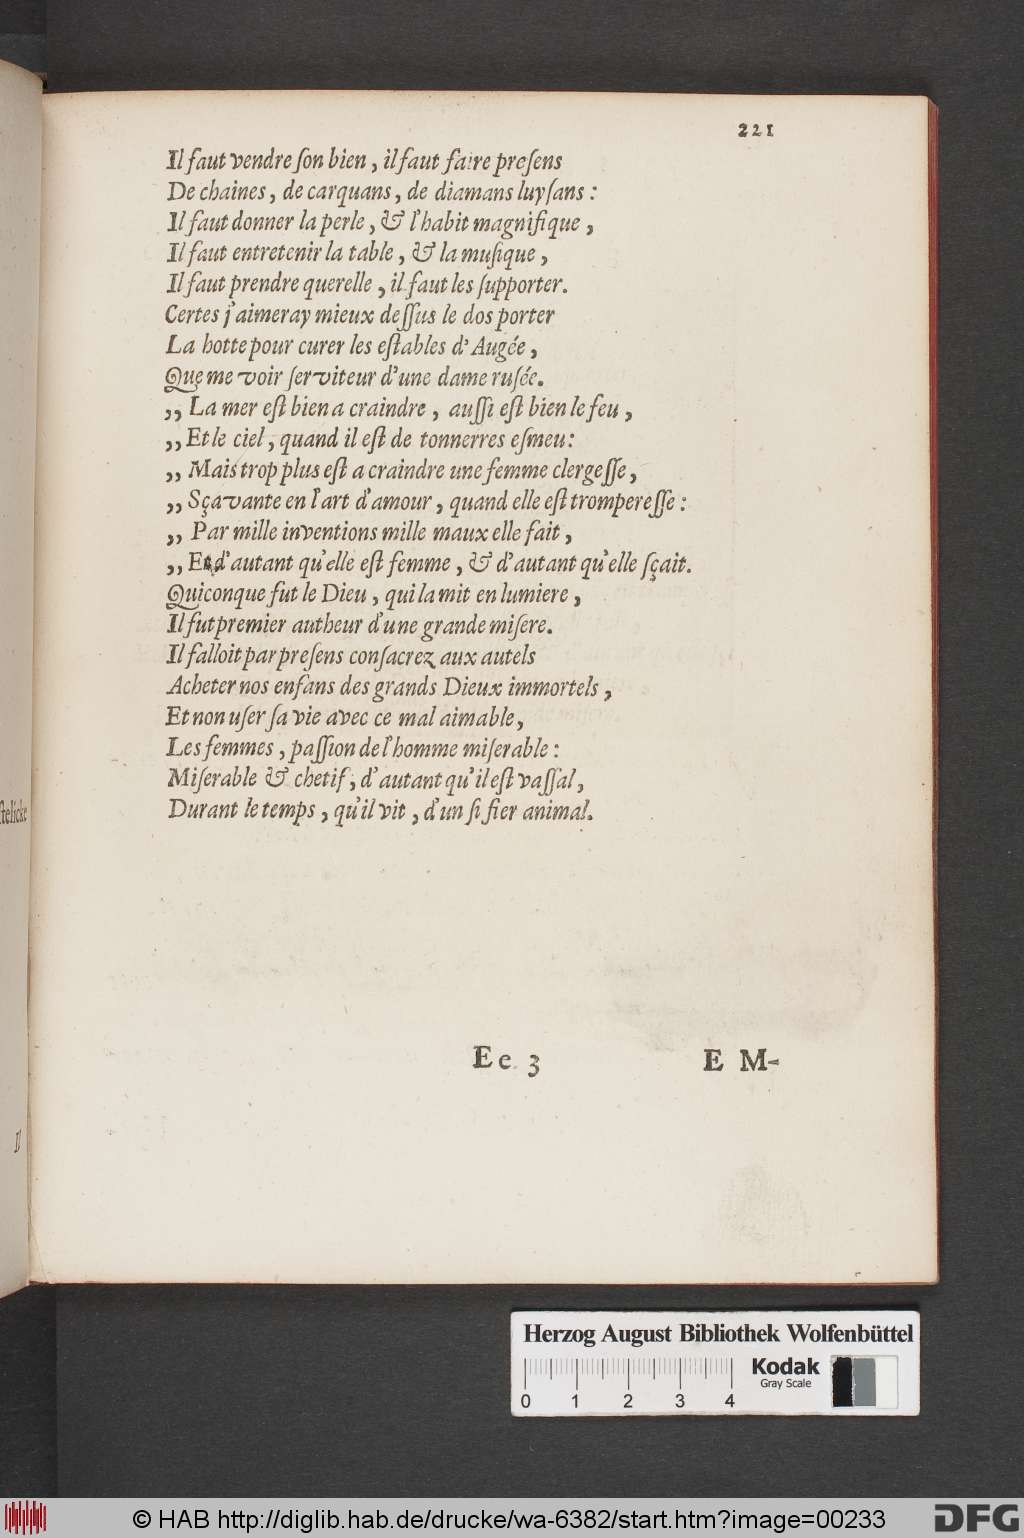 221
Il faut vendre ſon bien, il faut faire preſens
De chaines, de carquans, de diamans luyſans:
Il faut donner la perle, & l'habit magnifique,
Il faut entretenir la table, & la muſique,
Il faut prendre querelle, il faut les ſupporter.
Certes j'aimeray mieux deſſus le dos porter
La hotte pour curer les eſtables d'Augée,
Que me voir ſerviteur d'une dame ruſée.
,, La mer eſt bien a craindre, auſſi eſt bien le feu,
,, Et le ciel, quand il eſt de tonnerres eſmeu:
,, Mais trop plus eſt a craindre une femme clergeſſe,
,, Sçavante en l'art d'amour, quand elle eſt tromperesſe:
,, Par mille inventions mille maux elle fait,
,, Et d'autant qu'elle est femme, & d'autant qu'elle ſçait.
Quiconque fut le Dieu, qui la mit en lumiere,
Il fut premier autheur d'une grande miſere.
Il falloit par preſens conſacrez aux autels
Acheter nos enfans des grands Dieux immortels,
Et non uſer ſa vie avec ce mal aimable,
Les femmes, paſſion de l'homme miſerable:
Miſerable & chetif, d'autant qu'il eſt vaſſal,
Durant le temps, qu'il vit, d'un ſi fier animal.
Ee 3
E M-
ſtelicke
Il
Herzog August Bibliothek Wolfenbüttel
Kodak
Gray Scale
0 1 2 3 4
© HAB http://diglib.hab.de/drucke/wa-6382/start.htm?image=00233
DFG